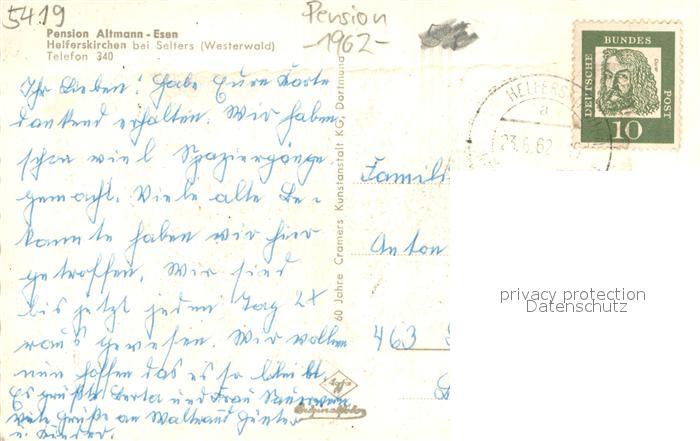 5419
Pension
-1962-
Pension Altmann-Esen
Helferskirchen bei Selters (Westerwald)
Telefon 340
Ihr Lieben! Habe Eure Karte
dankend erhalten. Wir haben
schon viel Spaziergänge
gemacht. Viele alte Be-
kannte haben wir hier
getroffen. Wir sind
bis jetzt jeden Tag 2x
raus gewesen. Wir wollen
nun hoffen das es so bleibt.
Es grüßt Berta und Frau
viele Grüße an Waltraud Günter
u. Kinder.
60 Jahre Cramers Kunstanstalt KG, Dortmund
Agfa
Originalfoto
Famili
Anton
463
HELFERS
a
23.6.62
DEUTSCHE
BUNDES
POST
Dürer
10
privacy protection
Datenschutz